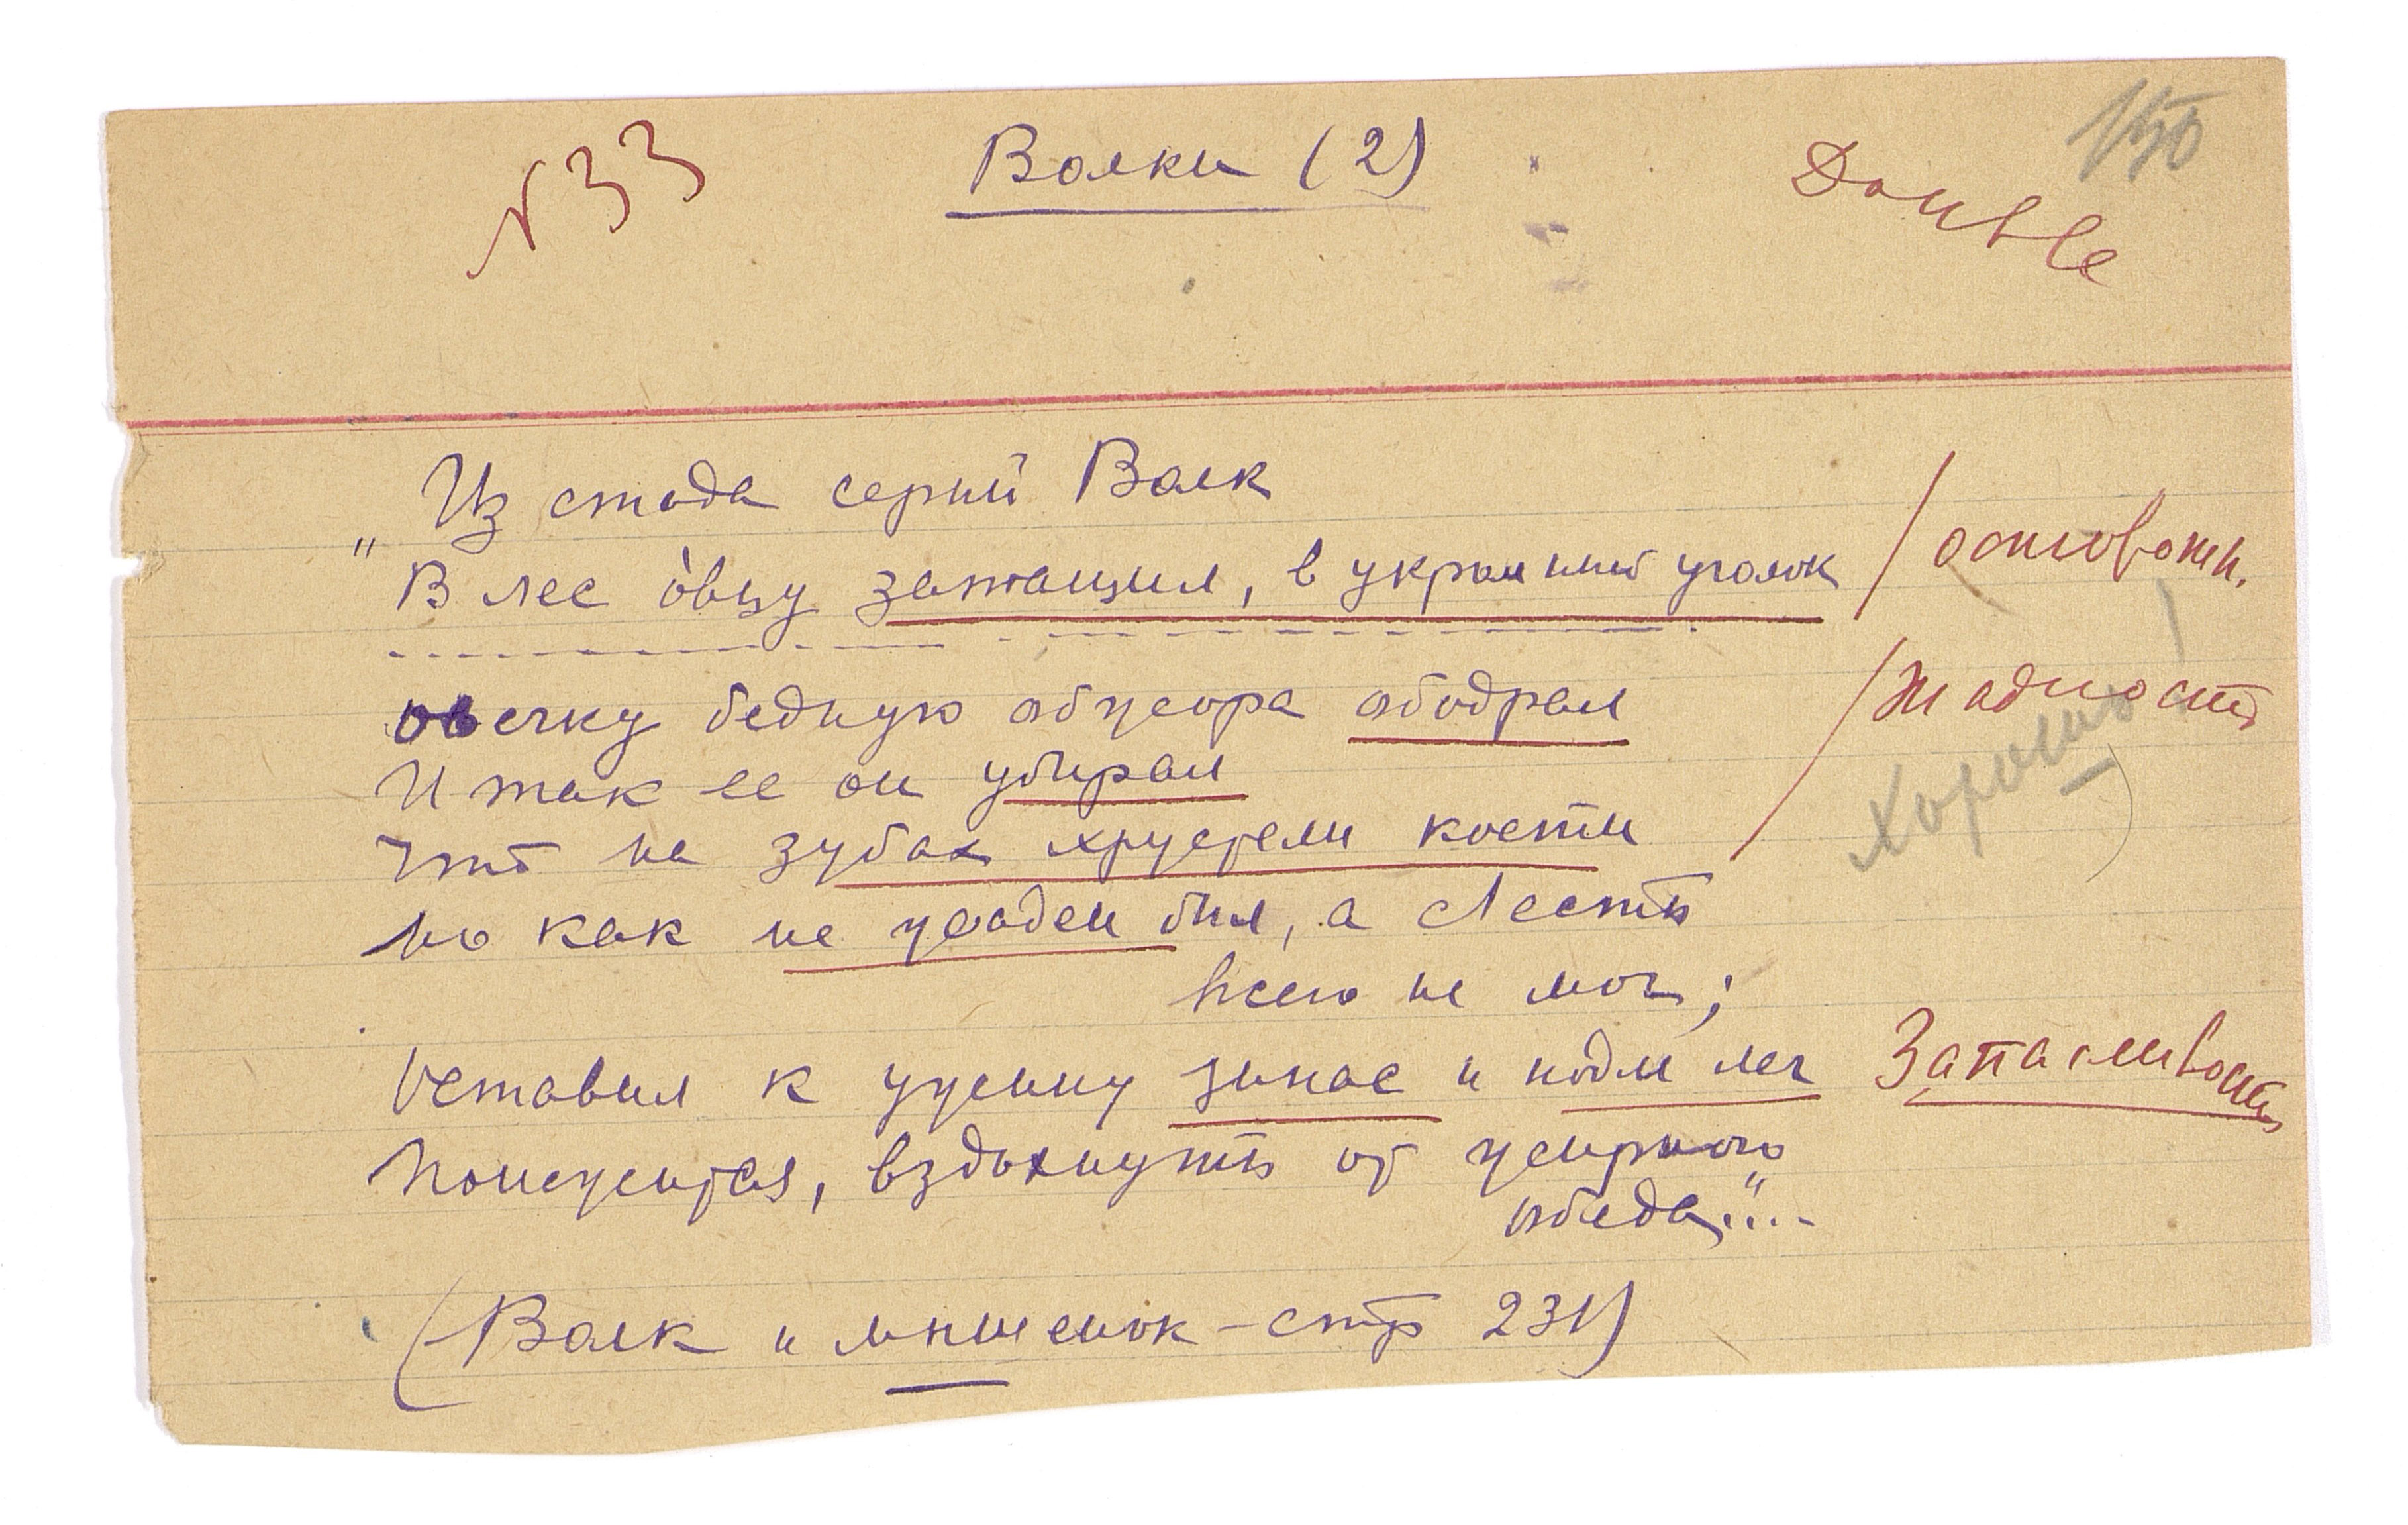 N33
Волки (2)
Double
150
„Из стада серый Волк
В лес о́вцу затащил, в укромный уголок / осторожн.
овечку бедную обжора ободрал / Жадность
И так ее он убирал
Хорошо!
Что на зубах хрустели кости
Но как не жаден был, а съесть
всего не мог;
Оставил к ужину запас и подле лег Запасливость
Понежиться, вздохнуть от жирного
обеда"...
(Волк и мышенок – стр 231)